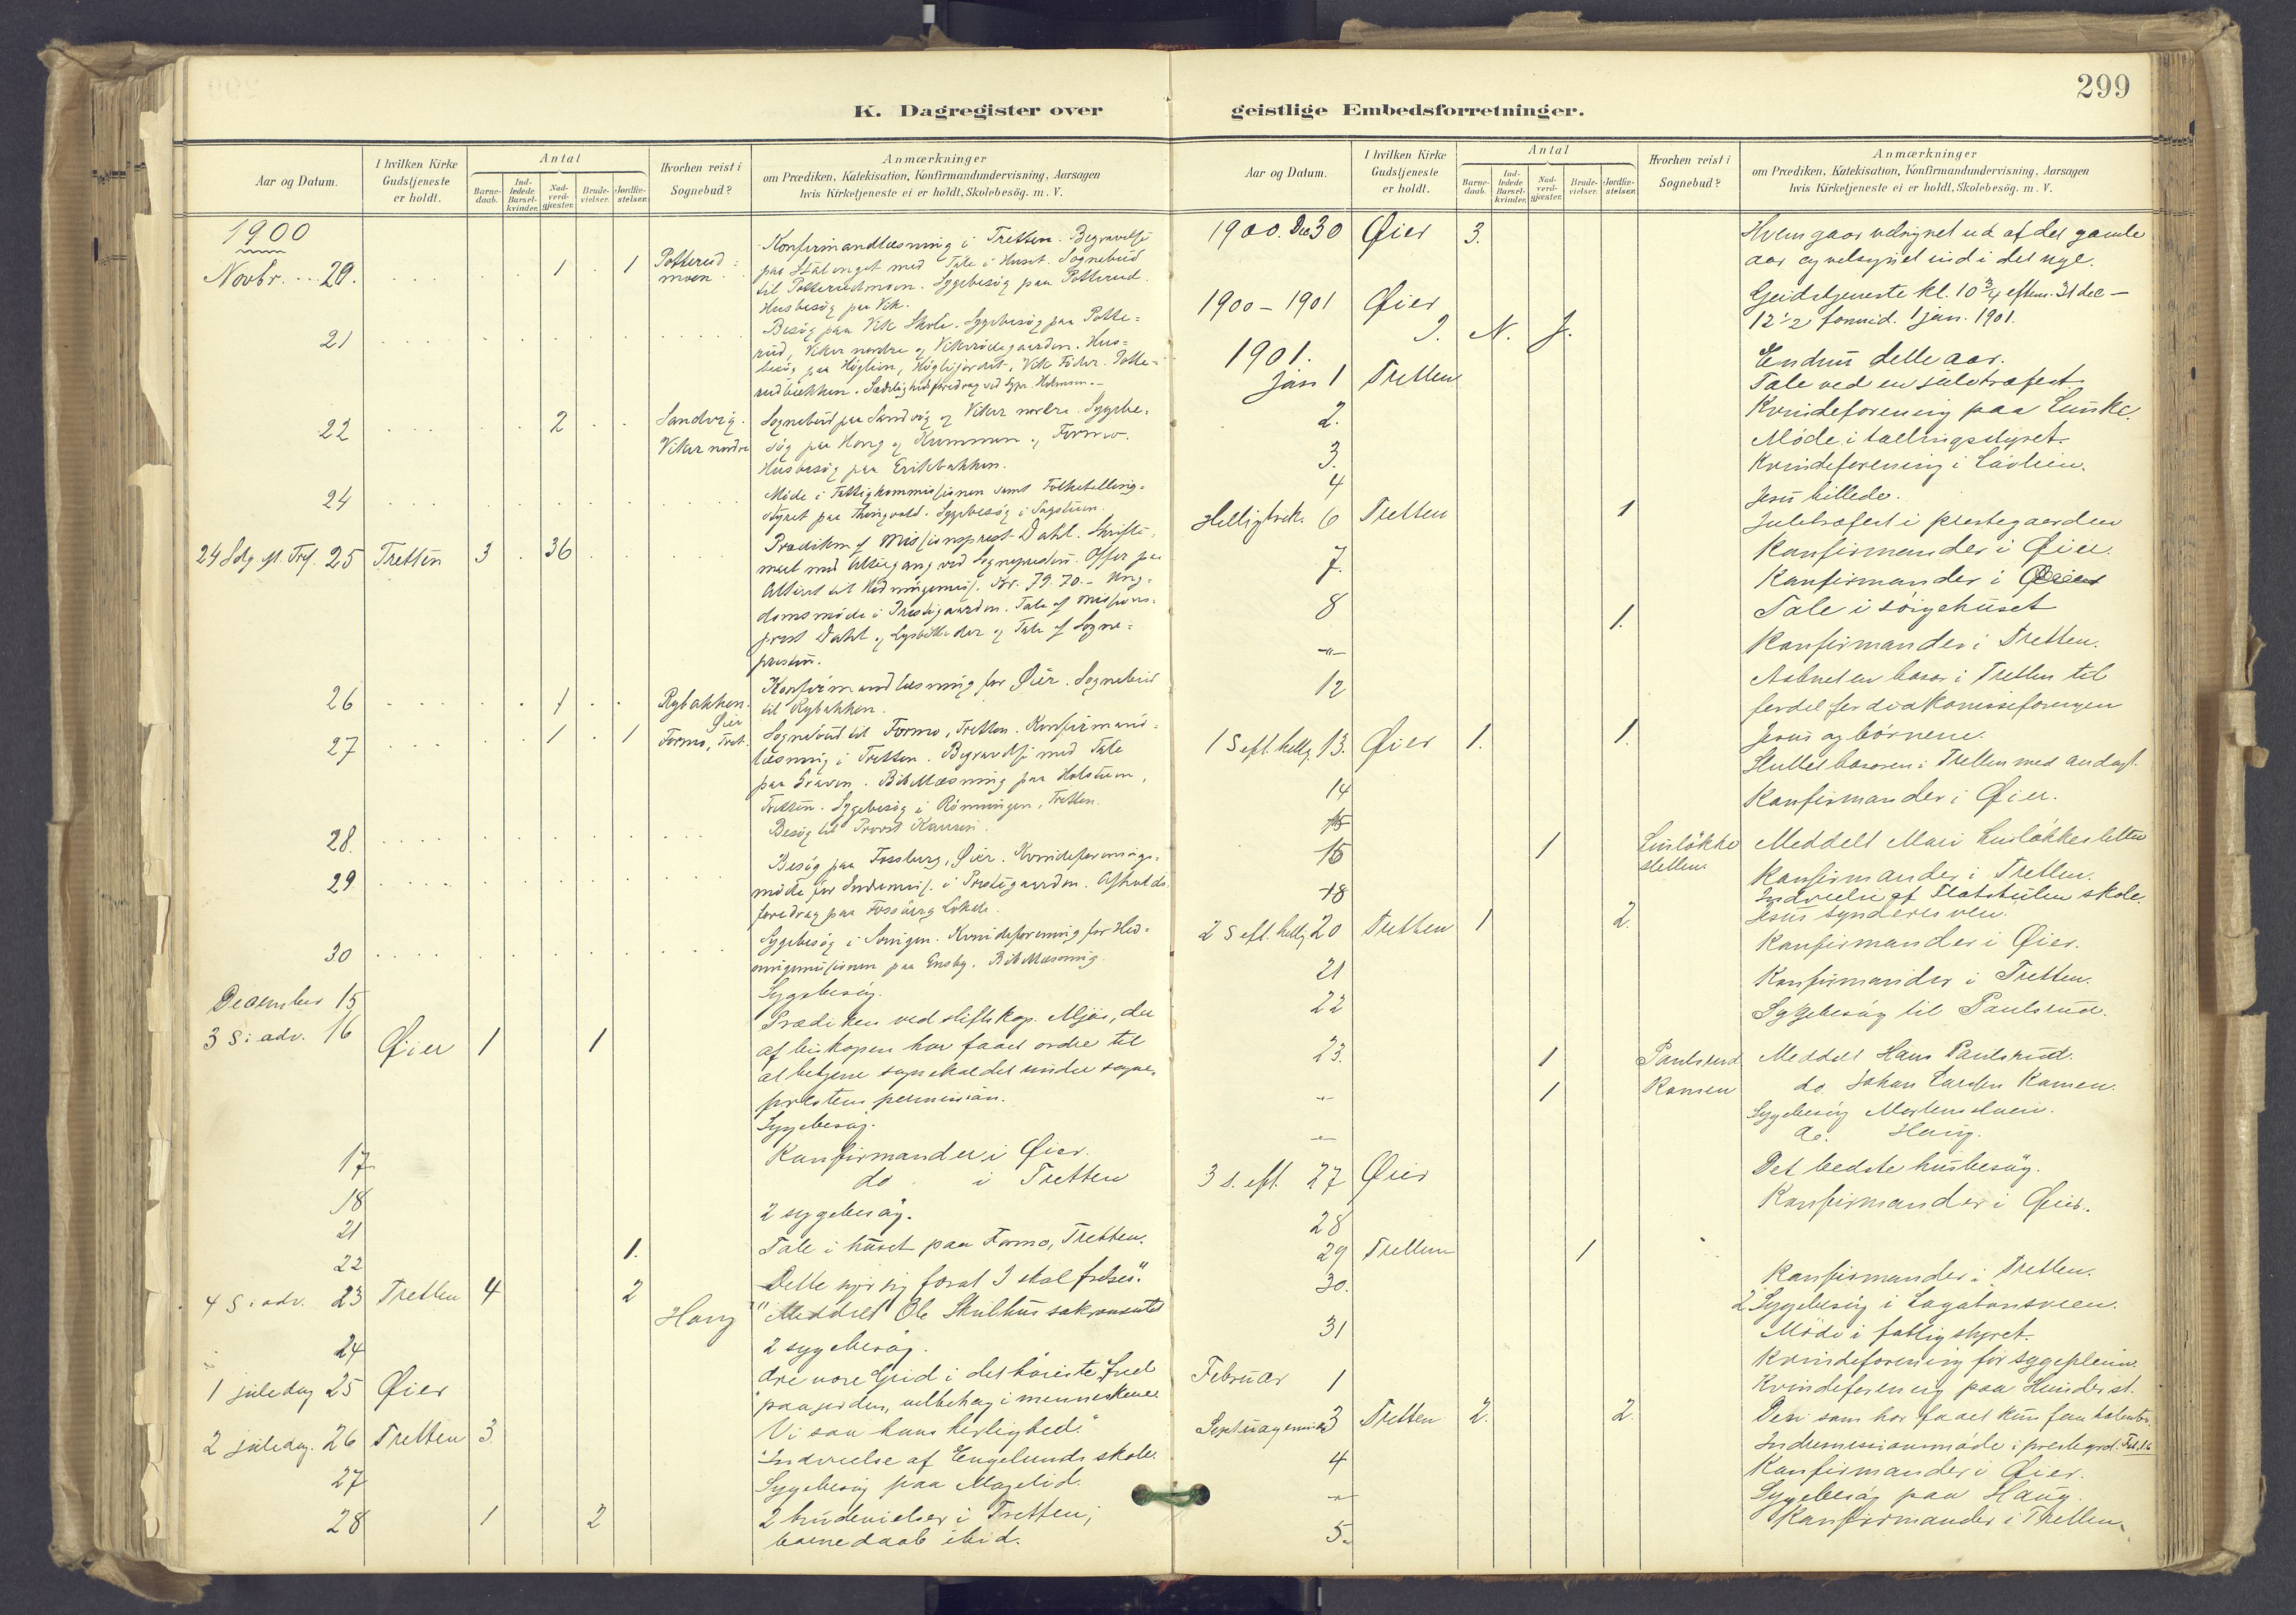 299
K. Dagregister over
geistlige Embedsforretninger.
Aar og Datum.
I hvilken Kirke
Gudstjeneste
er holdt.
Antal
Barne-
daab.
Ind-
ledede
Barsel-
kvinder.
Nad-
verd-
gjæster.
Brude-
vielser.
Jordfæ-
stelser.
Hvorhen reist i
Sognebud?
Anmærkninger
om Prædiken, Katekisation, Konfirmandundervisning, Aarsagen
hvis Kirketjeneste ei er holdt, Skolebesög. m. V.
1900
Novbr. 20. 1 1 Potterud=
moen
Konfirmandlæsning i Tretten. Begravelse
med Tale i Huset. Sognebud
til Potterudmoen. Sygebesög paa Potterud.
Husbesög paa Vik.
21
Besög paa Vik Skole. Sygebesög paa Potte=
rud, Vikar nordre og
22 2 Sandvig.
Vikar nordre
Sognebud paa Sandvig og Vikar nordre. Sygebe=
sög paa Haug og Formo.
Husbesög paa Erikbakken.
24
Möde i Fattigkommissionen samt Folketælling=
styret paa Thingvold. Sygebesög i
24 Sdg. e. Tref. 25 Tretten 3 36
Prædiken af Missionsprest Dahl. Skrifte=
maal med Altergang ved Sognepresten. Offer paa
Alteret til Hedningemis. Kr. 79.70. Ung=
domsmöde i Prestegaarden. Tale af Missions=
prest Dahl og Lysbilleder og Tale af Sogne=
presten.
26 1 Rybakken.
Öier
Konfirmandlæsning for Öier. Sognebud
til Rybakken.
27 1 1 Formo, Tret.
Sognebud til Formo, Tretten. Konfirmand=
læsning i Tretten. Begravelse med Tale
paa Graven. Bibellæsning paa Holstuen,
Tretten. Sygebesög i Rönningen, Tretten.
28.
Besög til Provst
29
Besög paa Fossberg, Öier. Kvindeforenings=
möde for Indremis. i Prestegaarden. Afholds
foredrag paa Fossberg Lokale.
30
Sygebesög i Kvindeforening for Hed=
ningemissionen paa Ensby. Bibellæsning.
December 15
Sygebesög.
3 S. i adv. 16 Öier 1 1
Prædiken ved stiftskap. Mjös, der
af biskopen har faaet ordre til
at betjene sognekaldet under sogne=
prestens permission.
Sygebesög.
17
Konfirmander i Öier.
18
do i Tretten
21
2 sygebesög.
22 1.
Tale i huset paa Formo, Tretten.
4 S. i adv. 23 Tretten 4 2
Haug
"Meddelt Ole Skulhus sakramentet
24
2 sygebesög.
1 juledag 25 Öier
Ære være Gud i det höieste, Fred
paa jorden, velbehag i menneskene
2 juledag. 26 Tretten 3.
"Vi saa hans herlighed."
27
Indvielse af Engelunds skole.
Sygebesög paa Magelid.
28 1 2
2 brudevielser i Tretten;
barnedaab ibid.
Aar og Datum.
I hvilken Kirke
Gudstjeneste
er holdt.
Antal
Barne-
daab.
Ind-
ledede
Barsel-
kvinder.
Nad-
verd-
gjæster.
Brude-
vielser.
Jordfæ-
stelser.
Hvorhen reist i
Sognebud?
Anmærkninger
om Prædiken, Katekisation, Konfirmandundervisning, Aarsagen
hvis Kirketjeneste ei er holdt, Skolebesög. m. V.
1900. Dec 30 Øier 3.
Hvem gaar velsignet ud af det gamle
aar og velsignet ind i det nye.
1900 - 1901 Øier
Gudstjeneste kl. 10 3/4 efterm. 31 dec -
12 1/2 formid. 1 jan. 1901.
J. N. J.
1901.
Jan 1 Tretten
Endnu dette aar.
Tale ved en juletræfest.
2.
Kvindeforening paa Lunke.
Möde i tællingsstyret.
3.
Kvindeforening i
4
Helligtrek. 6 Tretten 1
Jesu billede.
Juletræfest i prestegaarden
7.
Konfirmander i Øier.
Konfirmander i Øier
8 1.
Tale i sörgehuset
Konfirmander i Tretten.
12
Aabnet en basar i Tretten til
fordel for diakonisseforengen
1 S eft. hellg. 13. Øier 1. 1.
Jesus og börnene.
Sluttet basaren i Tretten med andagt.
14
Konfirmander i Øier.
15
15 1 Lunlökke
sletten.
Meddelt Mari Lunlökkesletten
Konfirmander i Tretten.
18
Indvielse af skole.
2 S eft. hellg 20 Tretten 1 2.
Jesus synderes ven.
21
Konfirmander i Øier.
22
Konfirmander i Tretten.
Sygebesög til Paulsrud.
23. 1 Paulsrud
Meddelt Hans Paulsrud.
1 Kamen
do. Johan Larsen Kamen.
Sygebesög
do. Haug.
3 s. eft. 27 Øier
Det bedste husbesög.
28
Konfirmander i Øier.
29 Tretten 1
30.
Konfirmander i Tretten.
2 Sygebesög i
31
Möde i fattigstyret.
Kvindeforening for sygepleien.
Februar 1
Kvindeforening paa
Septuagesima 3 Tretten 2. 2.
Den som har faaet kun fem talenter.
Indremissionsmöde i prestegrd.
4
Konfirmander i Øier.
Sygebesög paa Haug.
5.
Konfirmander i Tretten.